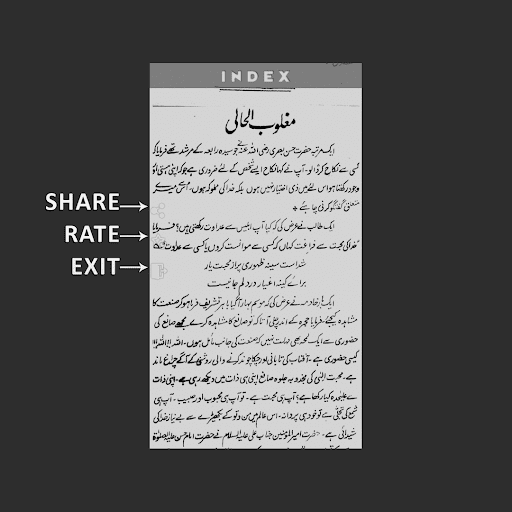 INDEX
مغلوب الحالی
ایک مرتبہ حضرت حسن بصری رضی اللہ عنہ نے جو سیدہ رابعہ کے مرشد تھے فرمایا کہ
کسی سے نکاح کر ڈالو۔ آپ نے کہا نکاح ایسے شخص کے لئے ضروری ہے جو کہ اپنی ہستی تو
وجود رکھتا ہو اس لئے میں ذی اختیار نہیں ہوں۔ بلکہ خدا کی مملوکہ ہوں۔
گفتگو کرنی چاہئے
ایک طالب نے عرض کی کہ کیا آپ ابلیس سے عداوت رکھتی ہیں؟ فرمایا
خدا کی محبت سے فراغت کہاں کہ کسی سے موانست کروں یا کسی سے عداوت
شد است سینہ ظہوری پر از محبت یار
برائے کینہ اغیار در دلم جا نیست
ایک خادمہ نے عرض کی کہ موسم بہار آ گیا باہر تشریف فرما ہو کر صنعت کا
مشاہدہ کیجئے۔ فرمایا حجرہ کے اندر چلی آ تاکہ تو صانع کا مشاہدہ کرے۔ مجھے صانع کی
حضوری سے ایک لمحہ بھی مہلت نہیں کہ صنعت کی جانب مائل ہوں۔ اللہ اللہ
کیسی حضوری ہے۔ آفتاب کی تابانی اور چکاچوند کرنے والی روشنی کے آگے چراغ ماند
ہے۔ محبت الٰہی کی مجذوبہ جلوہ صانع اپنی ہی ذات میں دیکھ رہی ہے۔ اپنی ذات
سے علیحدہ کیا رکھا ہے؟ آپ ہی محبت ہے۔ تو آپ ہی محبوب اور حبیب۔ آپ ہی
شمع کی تجلی ہے تو خود ہی پروانہ۔ اس عالم میں من و تو کے بکھیڑے سے بے نیاز خدا کی
شیدائی ہے۔ حضرت امیر المومنین جناب علی علیہ السلام نے حضرت امام حسن علیہ الصلوۃ
SHARE
RATE
EXIT